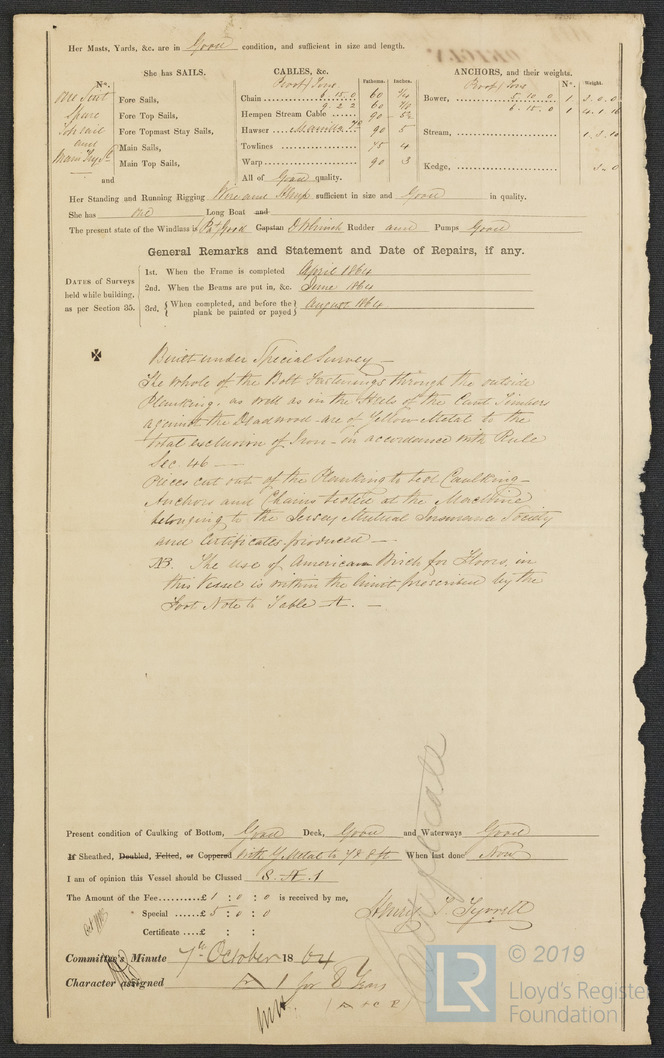 Her Masts, Yards, &c. are in Good condition, and sufficient in size and length.
She has SAILS.
CABLES, &c.
ANCHORS, and their weights.
N°.
Fathoms.
Inches.
N°.
Weight.
Proof/Tons
Proof/Tons
One Suit
Fore Sails,
Chain 6.15.0 60
Bower, 5.10.0 1
Spare
Fore Top Sails,
9.2.2 60
6.15.0 1
Hempen Stream Cable 90
Fore Topmast Stay Sails,
Hawser Manilla 90 5
Stream, 1
and
Main Sails,
Towlines 75 4
Main Top Sails,
Warp 90 3
Kedge,
and
All of Good quality.
Her Standing and Running Rigging Wire and Hemp sufficient in size and Good in quality.
She has One Long Boat and
The present state of the Windlass is Pat Good Capstan Rudder and Pumps Good
General Remarks and Statement and Date of Repairs, if any.
DATES of Surveys held while building, as per Section 35.
1st. When the Frame is completed April 1864
2nd. When the Beams are put in, &c. June 1864
3rd, { When completed, and before the plank be painted or payed } August 1864
Built under Special Survey —
The whole of the Bolt Fastenings through the outside
Planking. as well as in the Heels of the Cant Timbers
against the Deadwood are of Yellow Metal to the
total exclusion of Iron – in accordance with Rule
Sec. 46 —
Pieces cut out of the Planking to test Caulking –
Anchors and Chains tested at the Machine
belonging to the Jersey Mutual Insurance Society
and Certificates produced —
NB. The use of American Birch for Floors, in
this Vessel is within the limit prescribed by the
Foot Note to Table A. —
Present condition of Caulking of Bottom, Good Deck, Good and Waterways Good
If Sheathed, Doubled, Felted, or Coppered with Y Metal to 7 & 8 ft When last done Now
I am of opinion this Vessel should be Classed 8 A 1
The Amount of the Fee......£ 1 : 0 : 0 is received by me,
Special ......£ 5 : 0 : 0
Henry T. Tyrrell
Certificate ....£ : :
Committee's Minute 7th October 1864
Character assigned A 1 for 8 Years
LR
© 2019
Lloyd's Register
Foundation